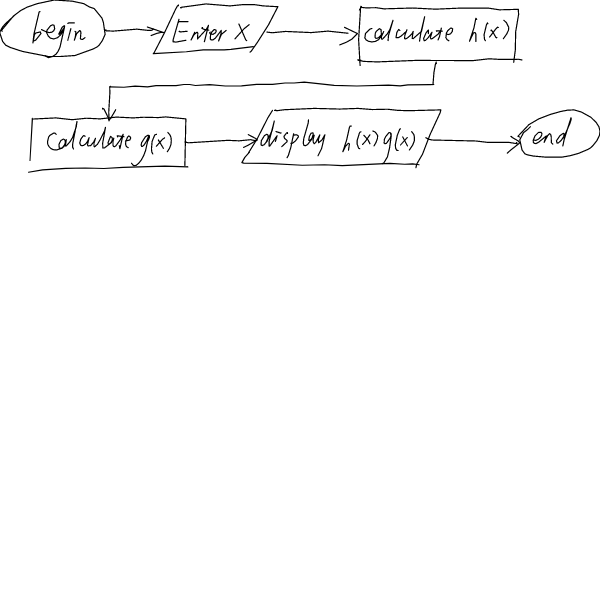 begin Enter X calculate h(x)
calculate g(x) display h(x) g(x) end